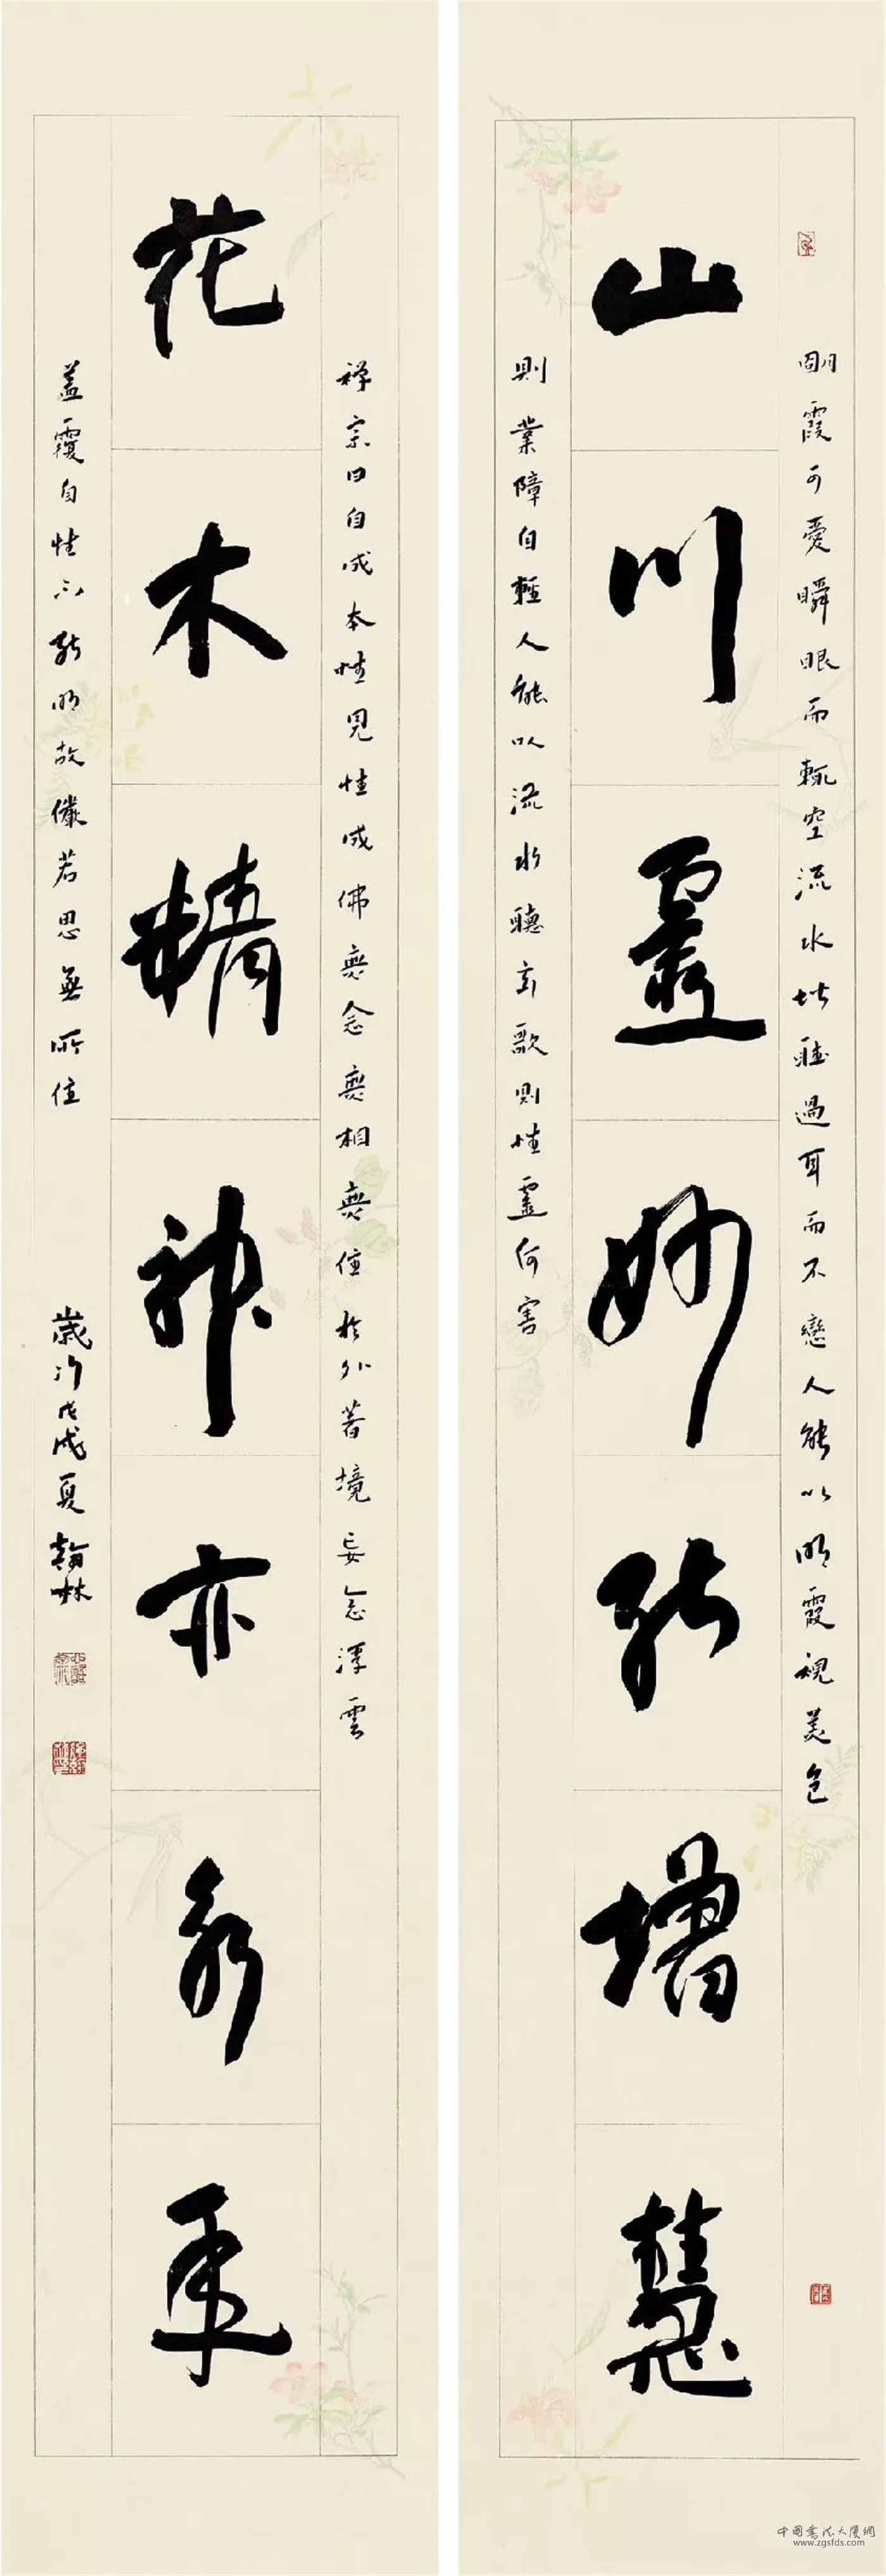 朙霞可愛瞬眼而輒空流水堪聽過耳而不戀人能以明霞視美色
山川靈妙能增慧
則業障自輕人能以流水聽玄歌則性靈何害
禪宗曰自成本性見性成佛無念無相無住於外著境妄念浮雲
花木精神亦永年
蓋覆自性不能明故儼若思無所住
歲次戊戌夏翰林
中国書法大厦網
www.zgsfds.com